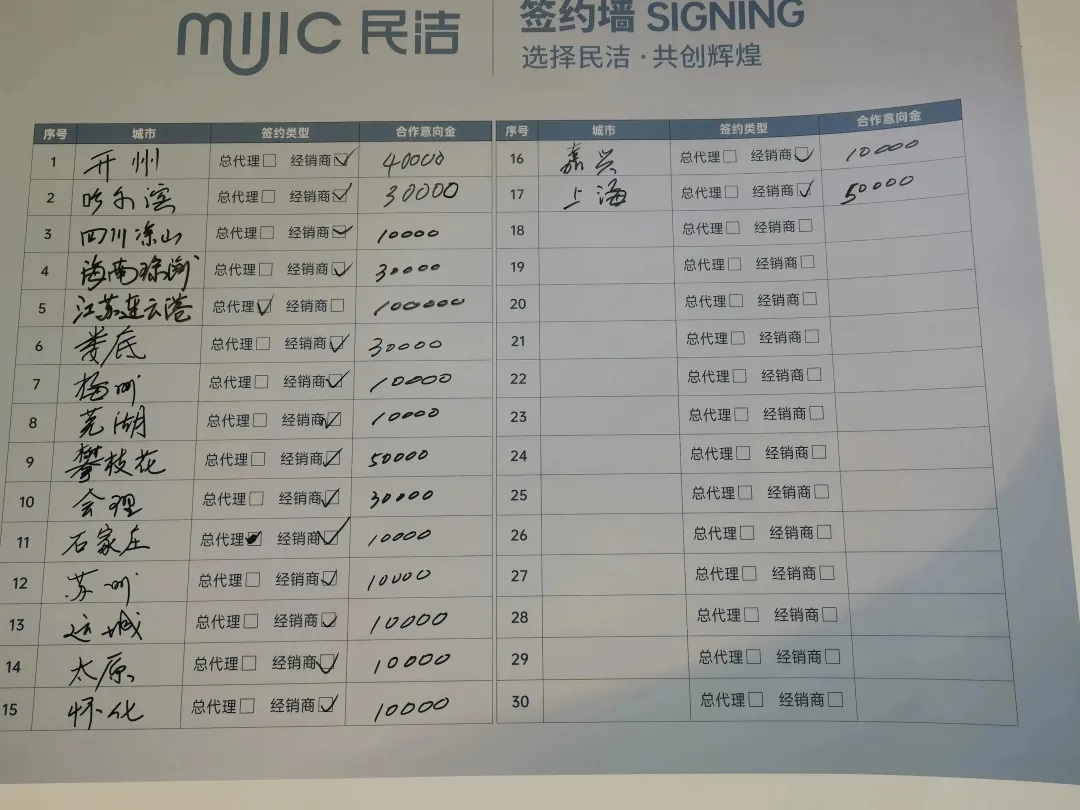 mijic 民洁
签约墙 SIGNING
选择民洁·共创辉煌
序号 城市 签约类型 合作意向金
1 开州 总代理□ 经销商☑ 40000
2 哈尔滨 总代理□ 经销商☑ 30000
3 四川凉山 总代理□ 经销商☑ 10000
4 海南琼海 总代理□ 经销商☑ 30000
5 江苏连云港 总代理☑ 经销商□ 100000
6 娄底 总代理□ 经销商☑ 30000
7 梅州 总代理□ 经销商☑ 10000
8 芜湖 总代理□ 经销商☑ 10000
9 攀枝花 总代理□ 经销商☑ 50000
10 会理 总代理□ 经销商☑ 30000
11 石家庄 总代理■ 经销商☑ 10000
12 苏州 总代理□ 经销商☑ 10000
13 运城 总代理□ 经销商☑ 10000
14 太原 总代理□ 经销商☑ 10000
15 怀化 总代理□ 经销商☑ 10000
序号 城市 签约类型 合作意向金
16 嘉兴 总代理□ 经销商☑ 10000
17 上海 总代理□ 经销商☑ 50000
18 总代理□ 经销商□
19 总代理□ 经销商□
20 总代理□ 经销商□
21 总代理□ 经销商□
22 总代理□ 经销商□
23 总代理□ 经销商□
24 总代理□ 经销商□
25 总代理□ 经销商□
26 总代理□ 经销商□
27 总代理□ 经销商□
28 总代理□ 经销商□
29 总代理□ 经销商□
30 总代理□ 经销商□